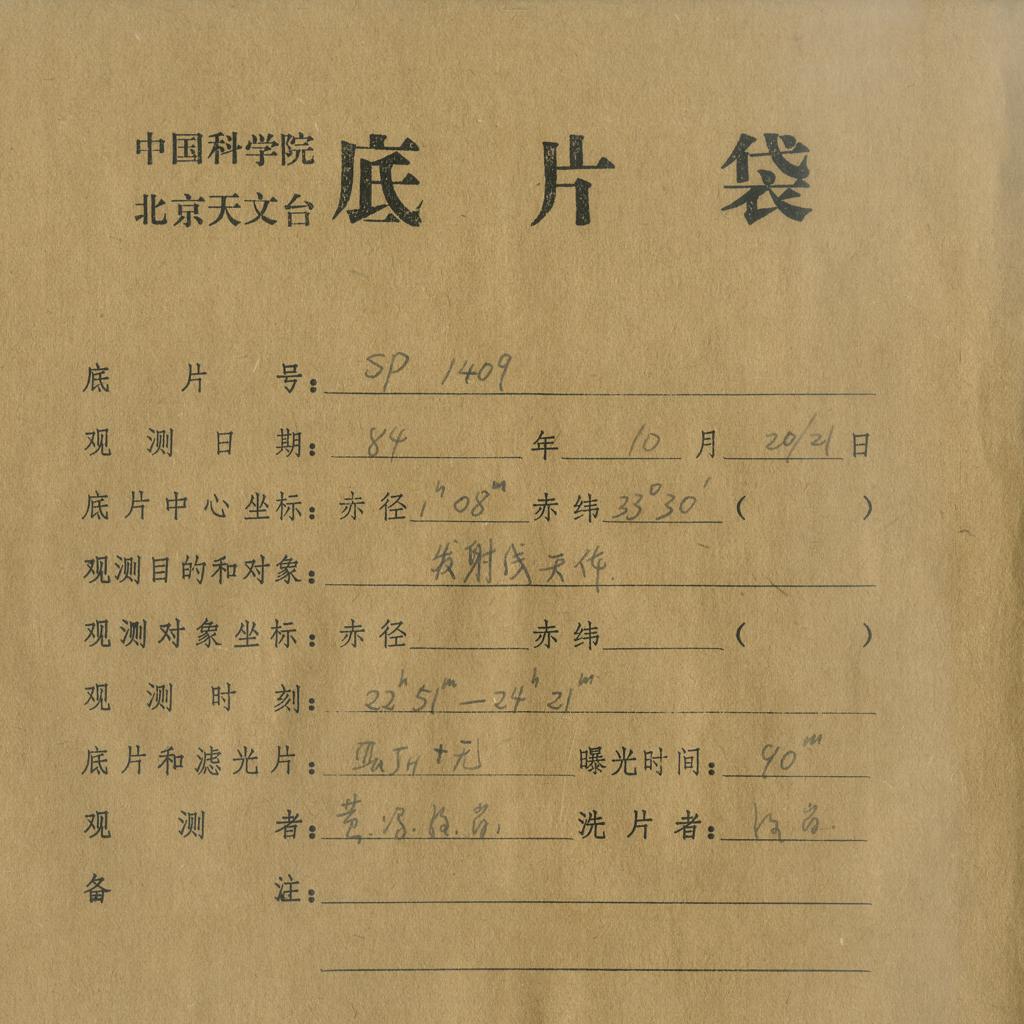 中国科学院
北京天文台
底片袋
底片号：SP 1409
观测日期：84年10月20/21日
底片中心坐标：赤径1ʰ08ᵐ赤纬33°30′（　　）
观测目的和对象：发射线天体
观测对象坐标：赤径　　赤纬　　（　　）
观测时刻：22ʰ51ᵐ—24ʰ21ᵐ
底片和滤光片：ⅢaJH+无 曝光时间：90ᵐ
观测者：黄. 肖. 洗片者：肖.
备注：